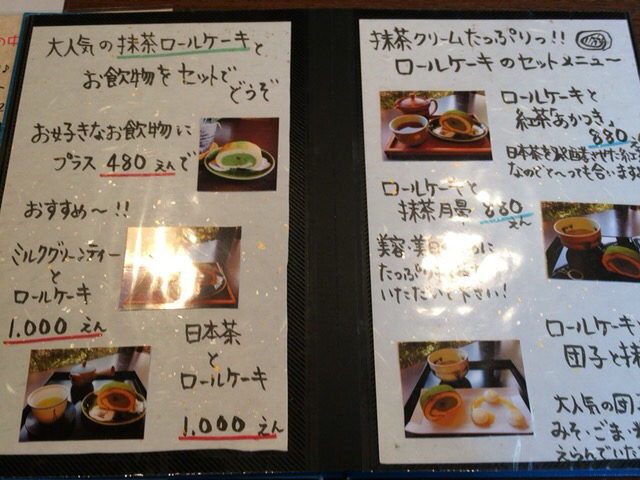 大人気の抹茶ロールケーキと
お飲物をセットで
どうぞ
お好きなお飲物に
プラス 480 えんで
おすすめ〜!!
ミルクグリーンティー
と
ロールケーキ
1.000 えん
日本茶
と
ロールケーキ
1.000 えん
抹茶クリームたっぷりっ!!
ロールケーキのセットメニュー
ロールケーキと
紅茶「あかつき」
880
日本茶を発酵させた紅
なのでとっても合いま
ロールケーキと
抹茶月暈 880
えん
美容・美白
たっぷり
いただいて下さい!
ロールケーキ
団子と抹
大人気の団子
みそ・ごま・
えらんでいた